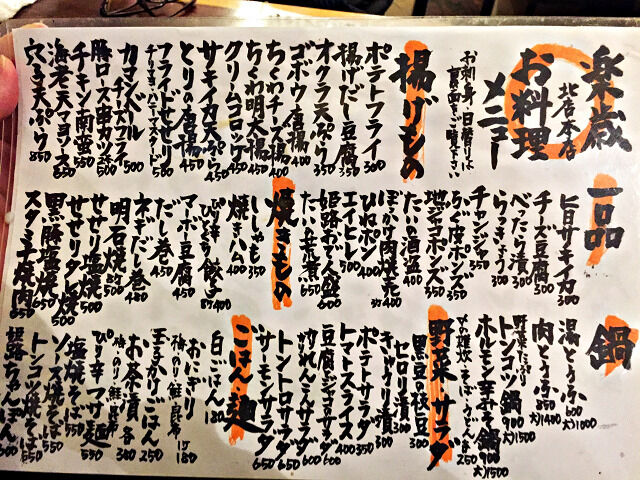 楽歳
北店本店
お料理
メニュー
お刺身・日替りは
裏面をご覧下さい
揚げもの
ポテトフライ 300
揚げだし豆腐 350
オクラ天ぷら 350
ゴボウ唐揚 400
ちくわチーズ揚 400
ちくわ明太揚 450
クリームコロッケ 400
サキイカ天ぷら 450
とりの唐揚 450
フライドせせり 500
カマンベールチーズフライ 500
豚ロース串カツ 2本 500
チキン南蛮 550
海老天マヨソース 650
穴子天ぷら 850
一品
旨口サキイカ 300
チーズ豆腐 300
べったら漬 300
らっきょう 300
チャンジャ 350
ふぐ皮ポンズ 350
地ジコポンズ 350
たいの酒盗 400
ぼっかけ肉焼売 3ケ 400
ひねポン 400
エイヒレ 500
姫路おでん盛 600
たいの荒煮 650
焼きもの
ししゃも 350
焼きハム 400
ぴり辛 餃子 8ケ 400
マーボ豆腐 450
だし巻 450
ネギだし巻 480
明石焼 500
せせり塩焼 500
せせりタレ焼 500
黒豚塩焼 650
スタミナ焼肉 650
鍋
湯とうふ 600 大)1000
肉とうふ 850 大)1400
野菜たっぷりトンコツ鍋 900 大)1500
ホルモン辛みそ鍋 900 大)1500
〆の雑炊・そば・うどん各250
野菜・サラダ
黒豆の枝豆 300
セロリ漬 300
キュウリ漬 300
ポテトサラダ 350
トマトスライス 400
豆腐とジャコのサラダ 600
ほうれん草サラダ 600
トントロサラダ 650
サーモンサラダ 650
ごはん・麺
白ごはん 180
おにぎり 梅・のり・鮭・昆布 1ケ180
玉子かけごはん 250
お茶漬 各300
梅・のり・鮭・昆布
ぴり辛マゼ麺 550
塩焼そば 550
ソース焼そば 550
トンコツ焼そば 550
姫路ちゃんぽん 600